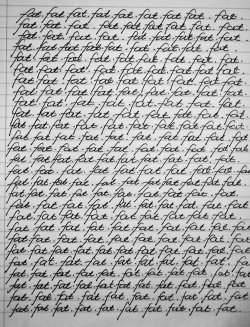 fat fat fat fat fat fat fat fat fat
fat fat fat fat fat fat fat fat fat
fat fat fat fat fat fat fat fat fat
fat fat fat fat fat fat fat fat fat
fat fat fat fat fat fat fat fat fat
fat fat fat fat fat fat fat fat fat
fat fat fat fat fat fat fat fat fat
fat fat fat fat fat fat fat fat fat
fat fat fat fat fat fat fat fat fat
fat fat fat fat fat fat fat fat fat
fat fat fat fat fat fat fat fat fat
fat fat fat fat fat fat fat fat fat
fat fat fat fat fat fat fat fat fat
fat fat fat fat fat fat fat fat fat
fat fat fat fat fat fat fat fat fat
fat fat fat fat fat fat fat fat fat
fat fat fat fat fat fat fat fat fat
fat fat fat fat fat fat fat fat fat
fat fat fat fat fat fat fat fat fat
fat fat fat fat fat fat fat fat fat
fat fat fat fat fat fat fat fat fat
fat fat fat fat fat fat fat fat fat
fat fat fat fat fat fat fat fat fat
fat fat fat fat fat fat fat fat fat
fat fat fat fat fat fat fat fat fat
fat fat fat fat fat fat fat fat fat
fat fat fat fat fat fat fat fat fat